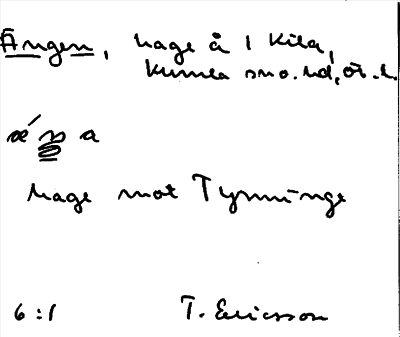 Ängen, hage å 1 Kila,
Kumla sn o. hd, Ör. l.
æ´ŋa
hage mot Tynninge
6:1 T. Ericsson